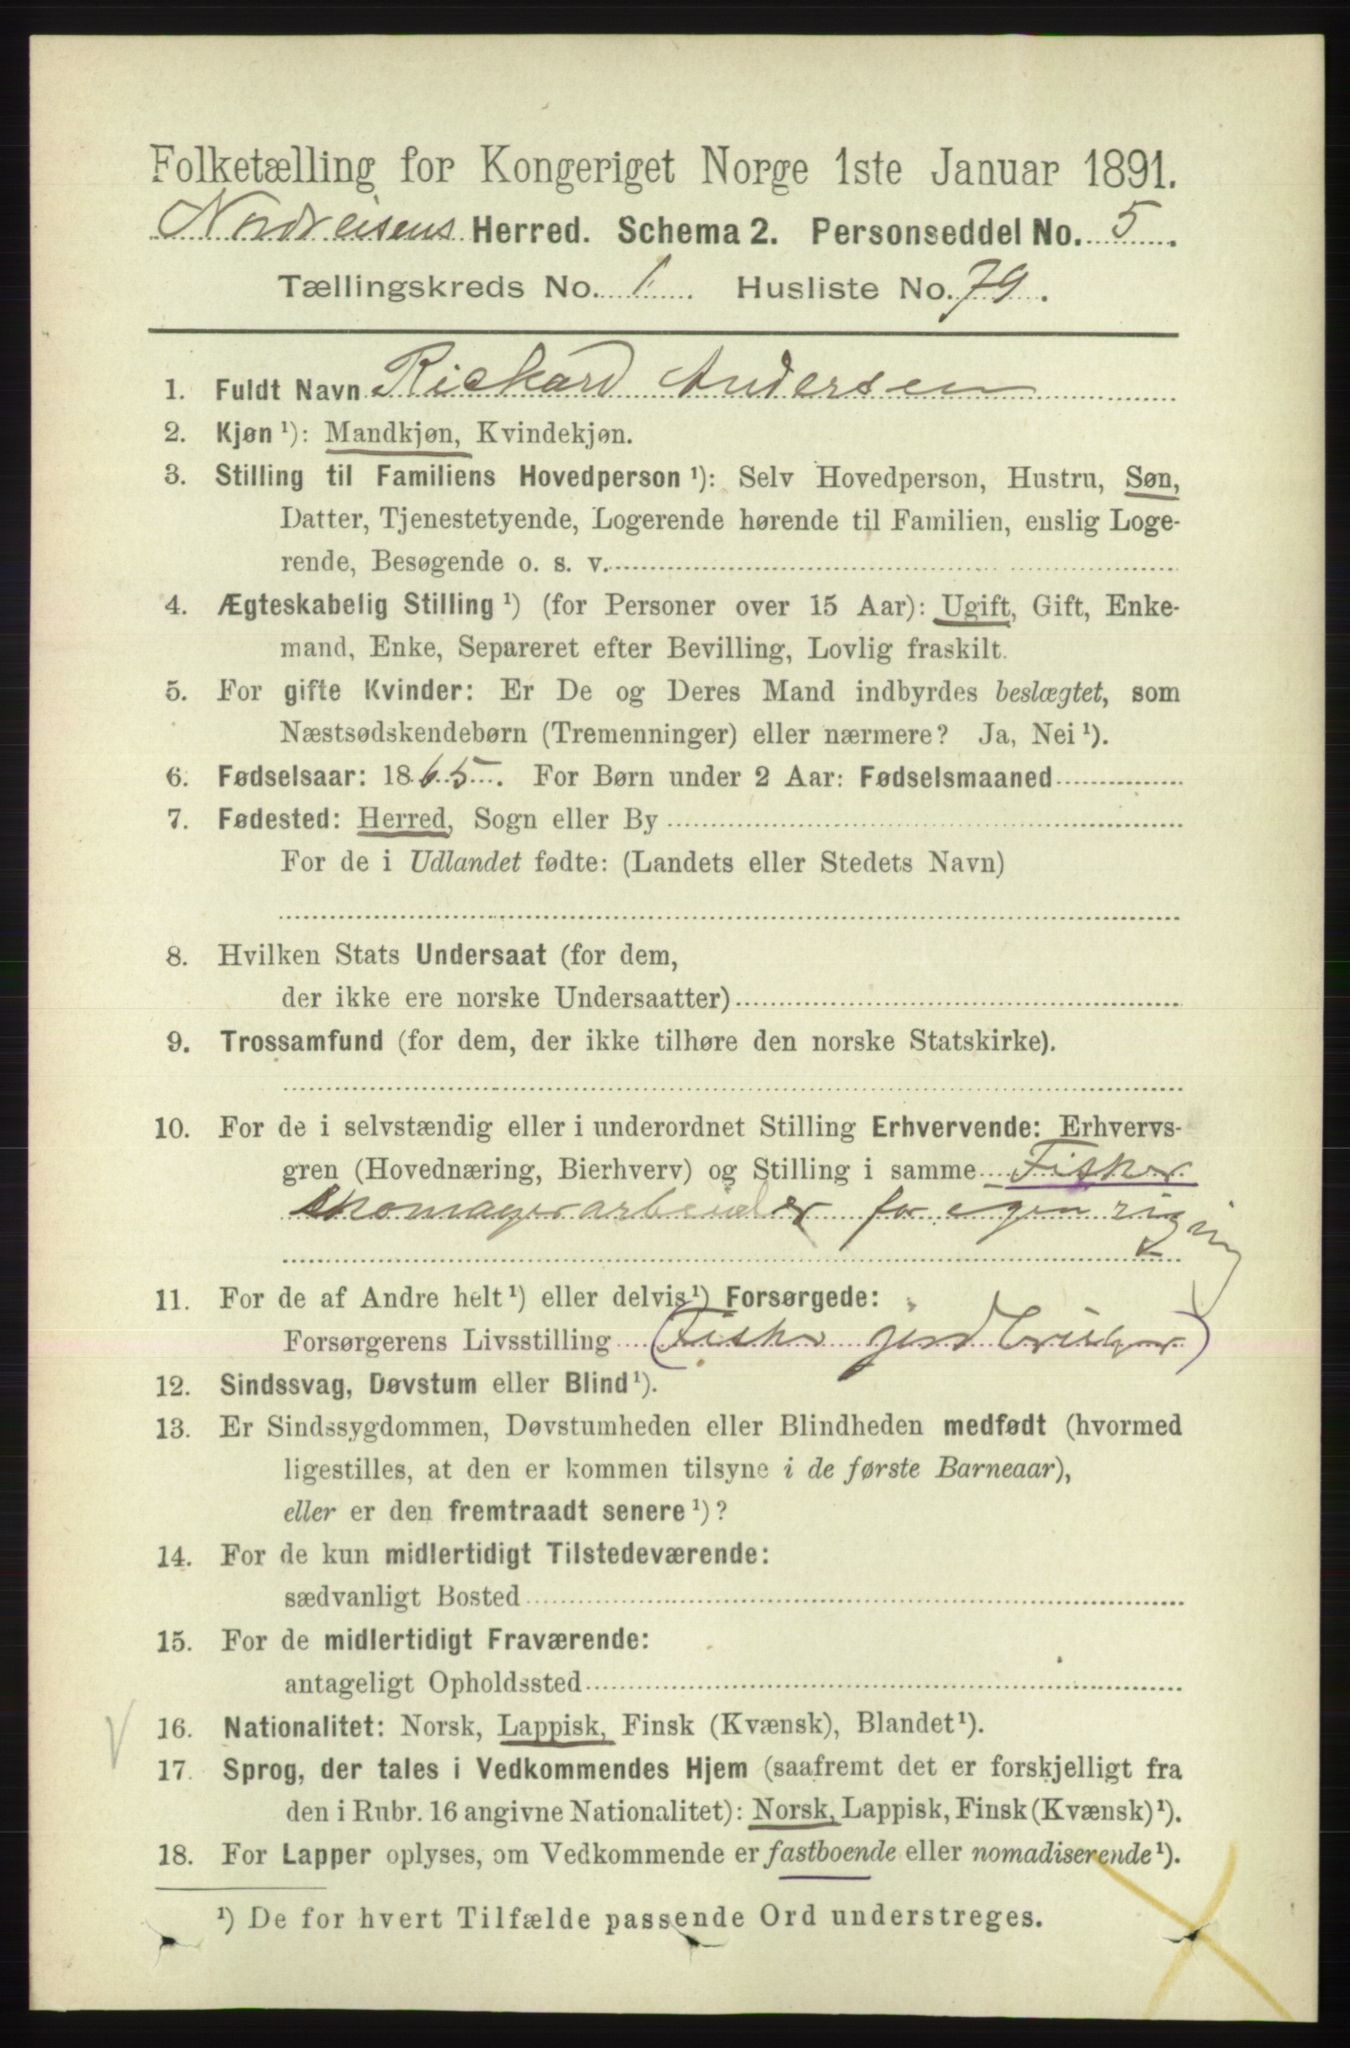 Folketælling for Kongeriget Norge 1ste Januar 1891.
Nordreisens Herred. Schema 2. Personseddel No. 5.
Tællingskreds No. 1. Husliste No. 79.
1. Fuldt Navn Rickard Andersen
2. Kjøn ¹): Mandkjøn, Kvindekjøn.
3. Stilling til Familiens Hovedperson ¹): Selv Hovedperson, Hustru, Søn,
Datter, Tjenestetyende, Logerende hørende til Familien, enslig Loge-
rende, Besøgende o. s. v.
4. Ægteskabelig Stilling ¹) (for Personer over 15 Aar): Ugift, Gift, Enke-
mand, Enke, Separeret efter Bevilling, Lovlig fraskilt.
5. For gifte Kvinder: Er De og Deres Mand indbyrdes beslægtet, som
Næstsødskendebørn (Tremenninger) eller nærmere? Ja, Nei ¹).
6. Fødselsaar: 1865. For Børn under 2 Aar: Fødselsmaaned
7. Fødested: Herred, Sogn eller By
For de i Udlandet fødte: (Landets eller Stedets Navn)
8. Hvilken Stats Undersaat (for dem,
der ikke ere norske Undersaatter)
9. Trossamfund (for dem, der ikke tilhøre den norske Statskirke).
10. For de i selvstændig eller i underordnet Stilling Erhvervende: Erhvervs-
gren (Hovednæring, Bierhverv) og Stilling i samme Fisker
skomagerarbeider for egen
11. For de af Andre helt ¹) eller delvis ¹) Forsørgede:
Forsørgerens Livsstilling (Fisker jordbruger)
12. Sindssvag, Døvstum eller Blind ¹).
13. Er Sindssygdommen, Døvstumheden eller Blindheden medfødt (hvormed
ligestilles, at den er kommen tilsyne i de første Barneaar),
eller er den fremtraadt senere ¹)?
14. For de kun midlertidigt Tilstedeværende:
sædvanligt Bosted
15. For de midlertidigt Fraværende:
antageligt Opholdssted
16. Nationalitet: Norsk, Lappisk, Finsk (Kvænsk), Blandet ¹).
17. Sprog, der tales i Vedkommendes Hjem (saafremt det er forskjelligt fra
den i Rubr. 16 angivne Nationalitet): Norsk, Lappisk, Finsk (Kvænsk) ¹).
18. For Lapper oplyses, om Vedkommende er fastboende eller nomadiserende ¹).
¹) De for hvert Tilfælde passende Ord understreges.